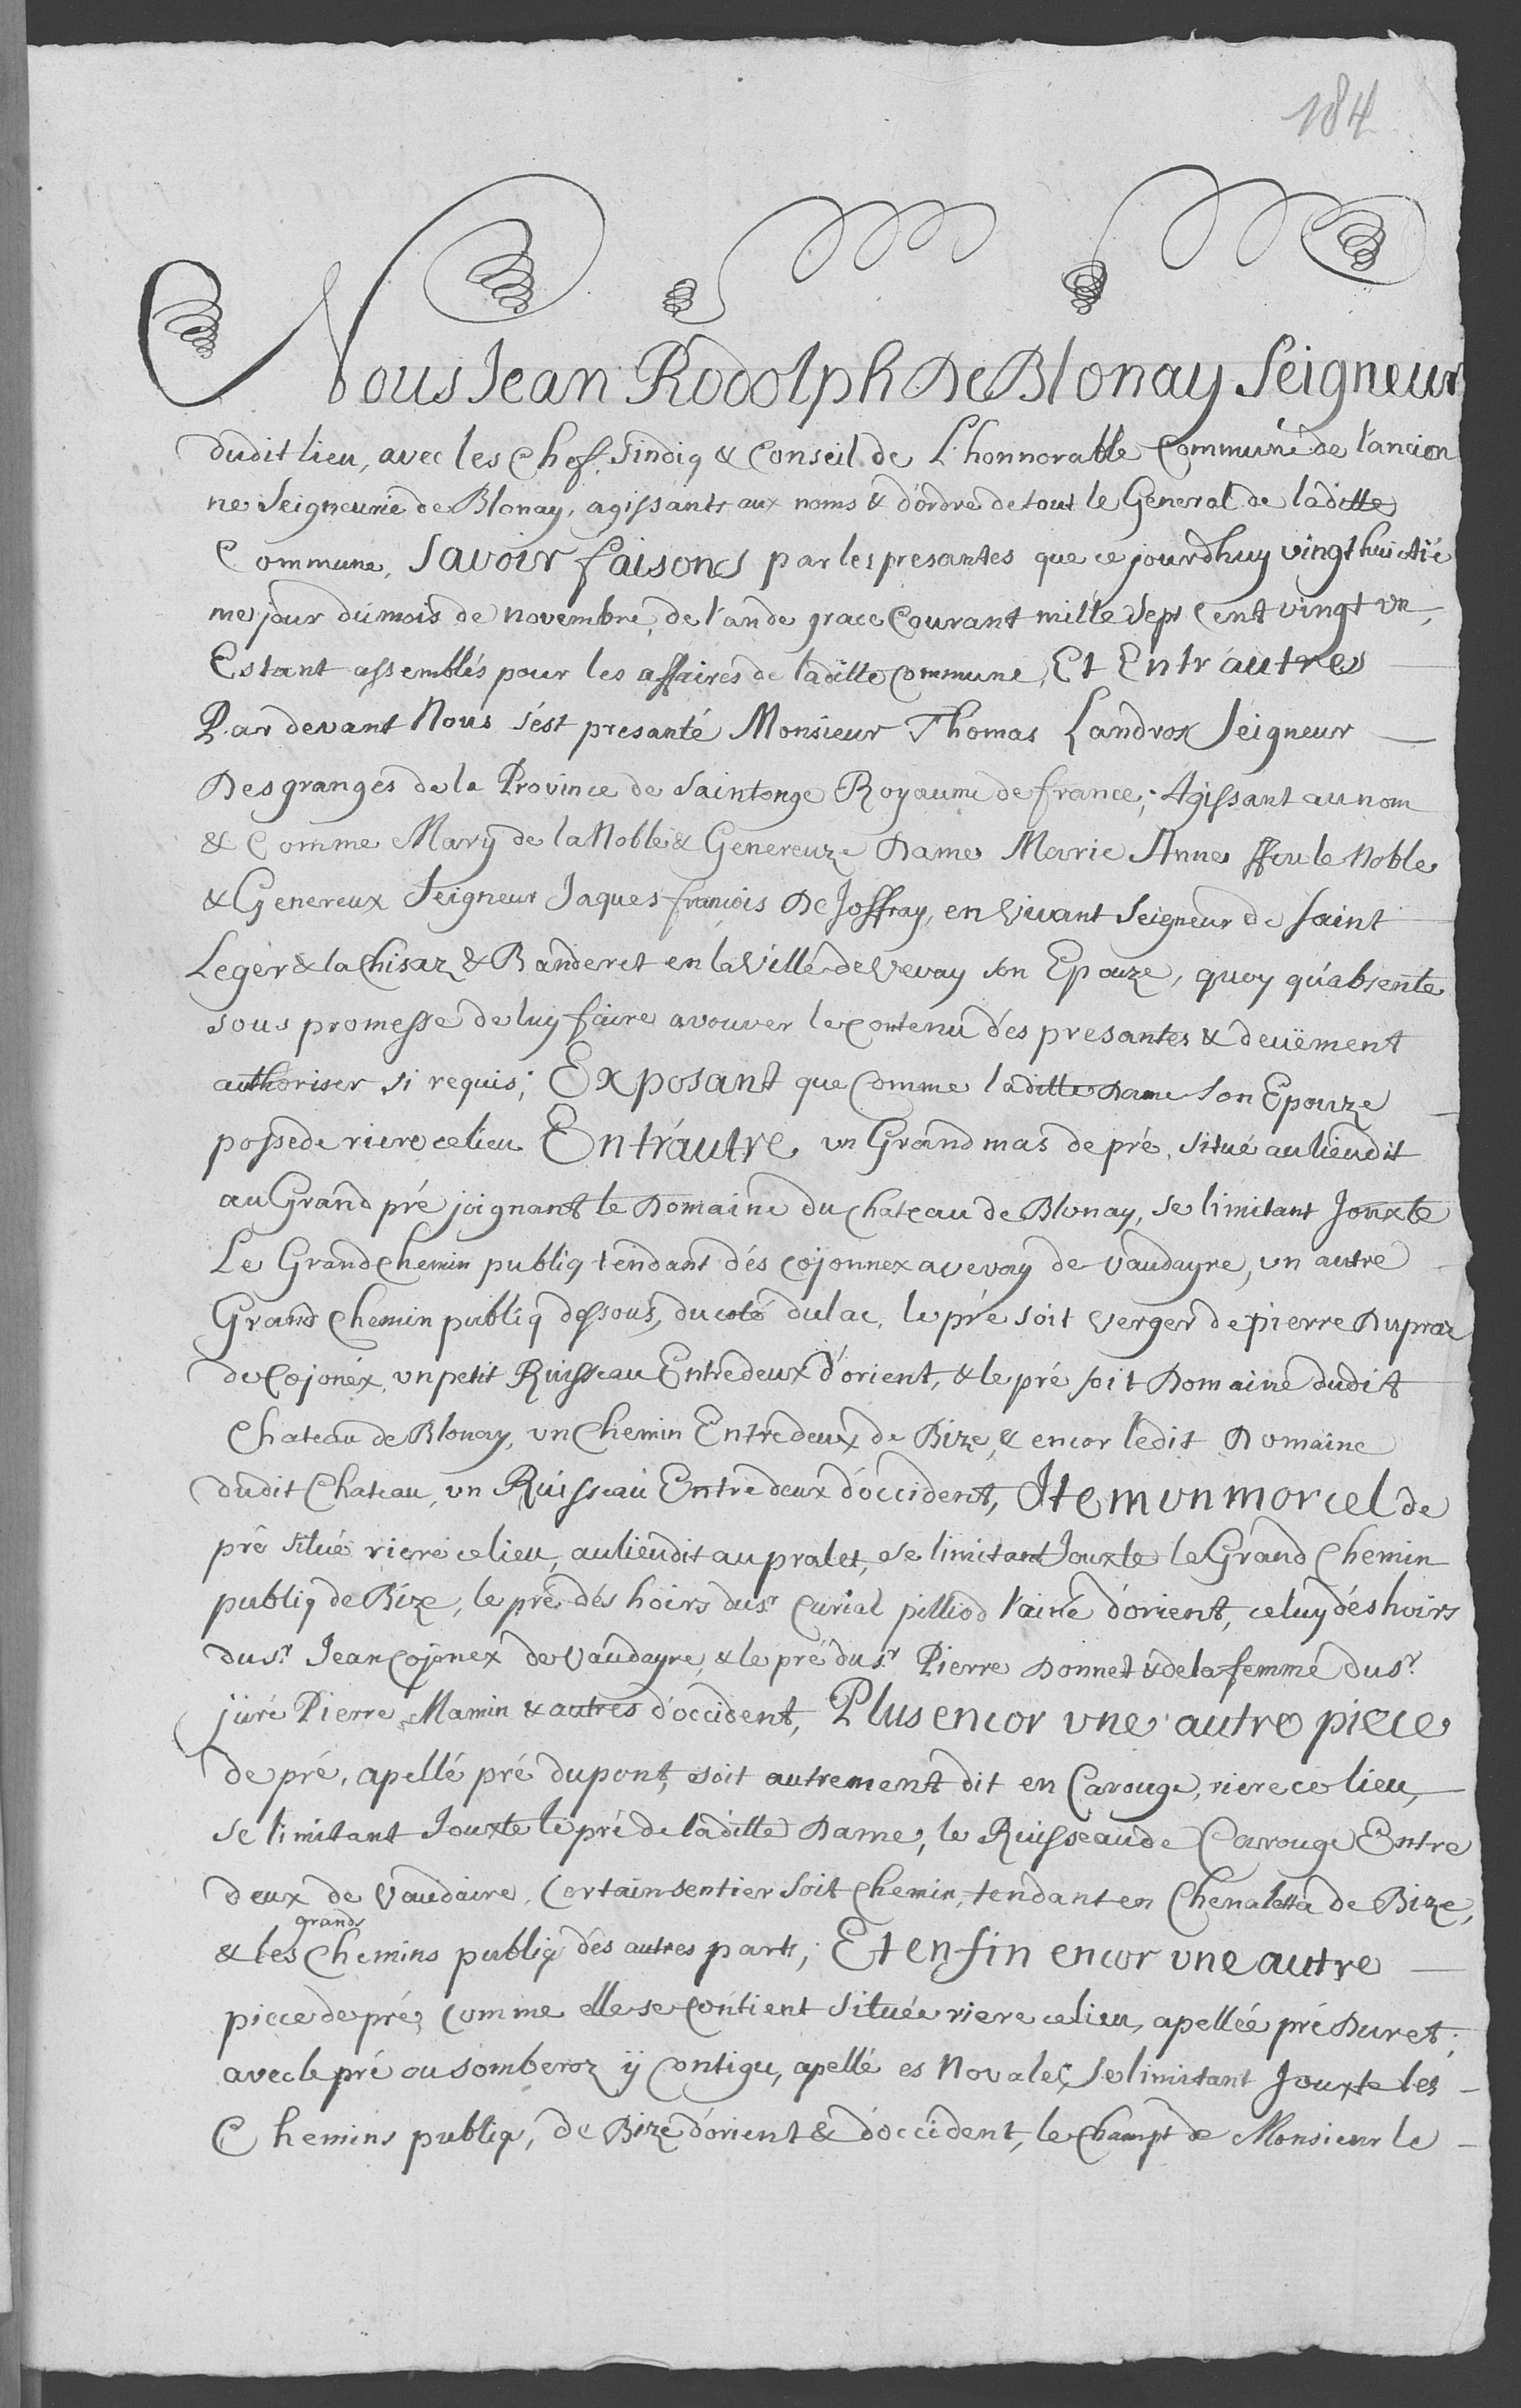 184
Nous Jean Rodolph De Blonay Seigneur
dudit lieu, avec les Chef, Sindiq & Conseil de L'honnorable Commune de l'ancien
ne Seigneurie de Blonay, agissants aux noms & d'ordre de tout le General de laditte
Commune, Savoir faisons par les presantes que ce jourdhuy vingt huictié
me jour du mois de novembre, de l'an de grace Courant mille Sept Cent vingt un,
Estant assemblés pour les affaires de laditte Commune, Et Entr'autres
Par devant Nous s'est presanté Monsieur Thomas Landrox Seigneur
Des granges de la Province de Saintonge Royaume de france; Agissant au nom
& Comme Mary de la Noble & Genereuze Dame Marie Anne ffeu le Noble
& Genereux Seigneur Jaques francois De Joffray, en vivant Seigneur de Saint
Leger & la Chisaz & Banderet en la Ville de Vevay son Epouze, quoy qu'absente
sous promesse de luy faire avouver le contenu des presantes & deuëment
authoriser si requis; Exposant que Comme laditte Dame son Epouze
possede riere ce lieu Entr'autre un Grand mas de pré, situé au lieu dit
au Grand pré joignant le Domaine du Chateau de Blonay, se limitant Jouxte
Le Grand Chemin publiq tendant dés Cojonnex a vevay de vaudayre, un autre
Grand Chemin publiq dessous, du coté du lac, le pré soit verger de pierre Dupraz
de Cojonéx, un petit Ruisseau Entredeux d'orient, & le pré soit Domaine dudit
Chateau de Blonay, un Chemin Entredeux de Bize, & encor ledit Domaine
dudit Chateau, un Ruisseau Entredeux d'occident, Item un morcel de
pré situé riere ce lieu, au lieu dit au pralet, se limitant Jouxte le Grand Chemin
publiq de Bize, le pré dés hoirs du sr. Curial pilliod l'ainé d'orient, celuy dés hoirs
du sr. Jean Cojonex de Vaudayre, & le pré du sr. Pierre Donnet & de la femme du sr.
juré Pierre Mamin & autres d'occident, Plus encor une autre piece
de pré, apellé pré dupont, soit autrement dit en Carouge, riere ce lieu,
se limitant Jouxte le pré de laditte Dame, le Ruisseau de Carouge Entre
deux de Vaudaire, Certain sentier soit Chemin, tendant en Chenaletta de Bize,
grands
& les Chemins publiq dés autres parts; Et enfin encor une autre
piece de pré, Comme elle se Contient située riere ce lieu, apellée pré Duret,
avec le pré ou somberoz ÿ Contigu, apellé es Novales, se limitant Jouxte les
Chemins publiq, de Bize d'orient & d'occident, le Champt de Monsieur le